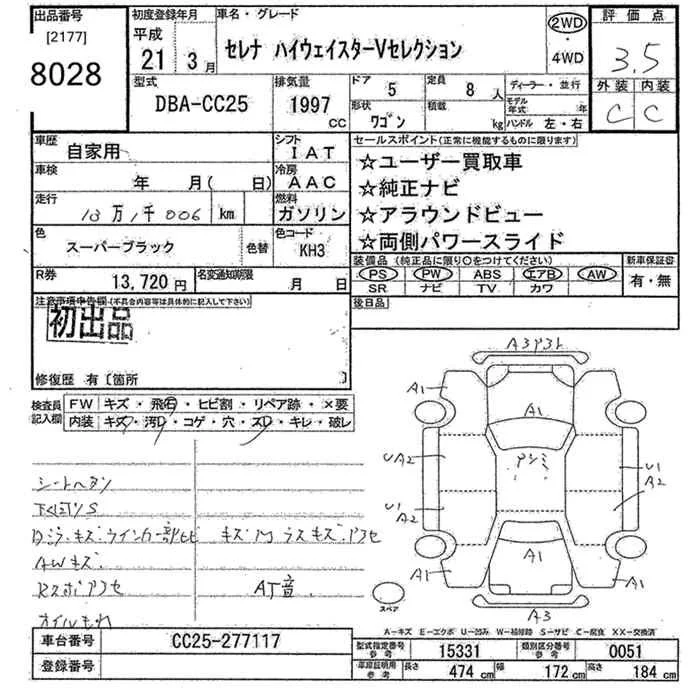 出品番号
[2177]
8028
初度登録年月
平成
21年 3月
車名・グレード
セレナ ハイウェイスターVセレクション
2WD
・
4WD
評価点
3.5
外装 内装
C C
型式
DBA-CC25
排気量
1997
CC
ドア 5
定員 8 人
形状 ワゴン
積載 kg
ディーラー・並行
モデル年式 年
ハンドル 左・右
車歴
自家用
シフト
IAT
車検
年 月( 日)
冷房
AAC
走行
10万1千006 km
燃料
ガソリン
色
スーパーブラック
色替
色コード
KH3
R券
13,720円
名変通知期限
月 日
セールスポイント(正常に機能するものに限ります)
☆ユーザー買取車
☆純正ナビ
☆アラウンドビュー
☆両側パワースライド
装備品 (純正品に限り○をつけてください)
PS PW ABS エアB AW
SR ナビ TV カワ
新車保証書
有・無
後日品
注意事項申告欄(不具合内容等は具体的に記入して下さい)
初出品
修復歴 有〔箇所 〕
検査員記入欄
FW キズ・飛石・ヒビ割・リペア跡・×要
内装 キズ・汚D・コゲ・穴・スD・キレ・破レ
シートヘタリ
下廻リS
AWキズ
AT音
オイルもれ
A1
A1
U A2
アシミ
U1 A2
U1 A2
A1
A1
A1
A3
スペア
A-キズ E-エクボ U-凹み W-補修跡 S-サビ C-腐食 XX-交換済
車台番号
CC25-277117
型式指定番号 参考
15331
類別区分番号 参考
0051
登録番号
車庫証明用 参考
長さ 474 cm
幅 172 cm
高さ 184 cm